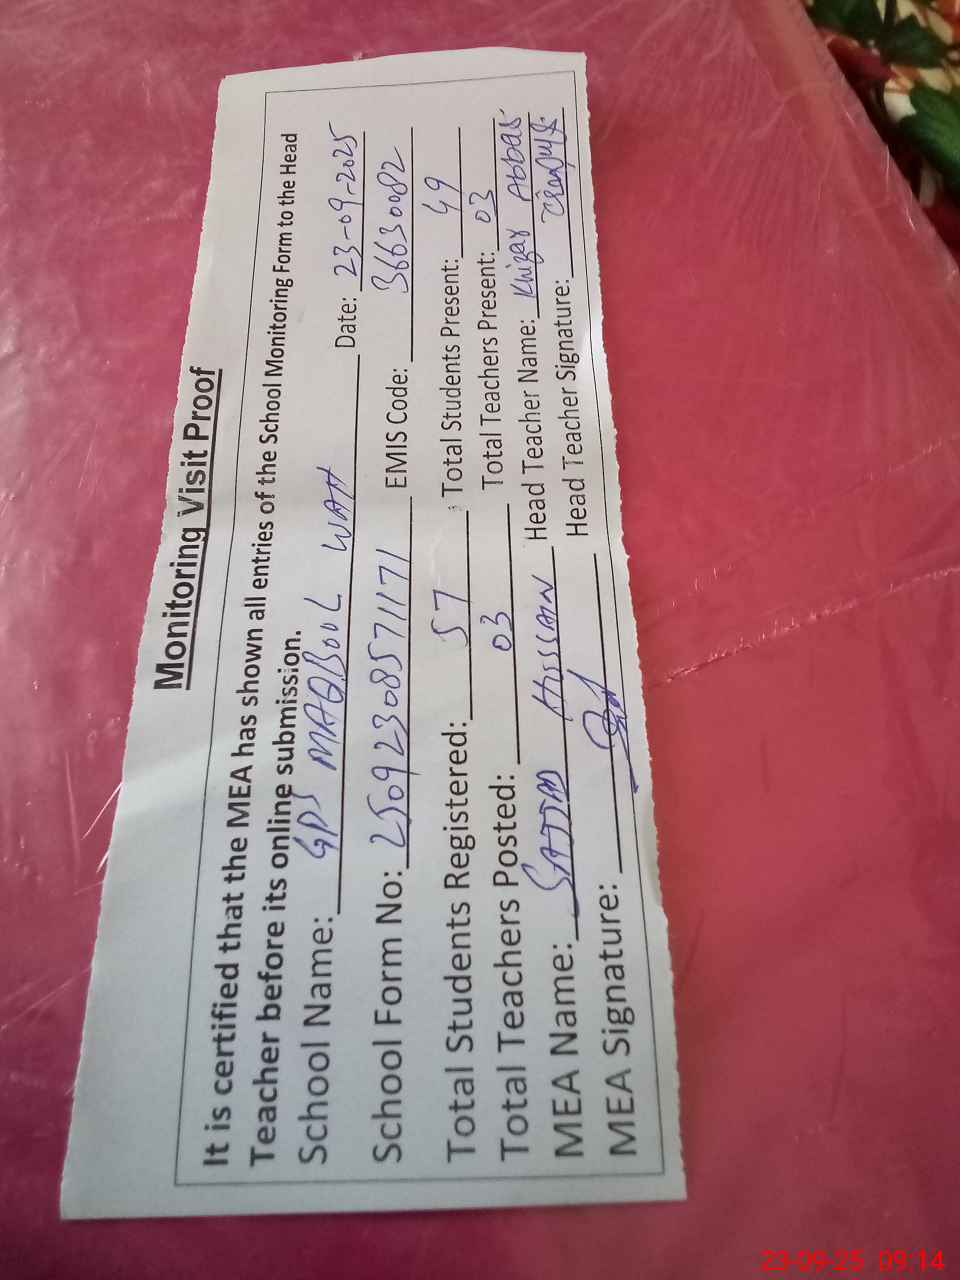 Monitoring Visit Proof
It is certified that the MEA has shown all entries of the School Monitoring Form to the Head
Teacher before its online submission.
School Name: GPS MAQBOOL WAH Date: 23-09-2025
School Form No: 25092308571171 EMIS Code: 36630082
Total Students Registered: 57 Total Students Present: 49
Total Teachers Posted: 03 Total Teachers Present: 03
MEA Name: SAJJAD HUSSAIN Head Teacher Name: Khizar Abbas
MEA Signature: Head Teacher Signature:
23-09-25 09:14